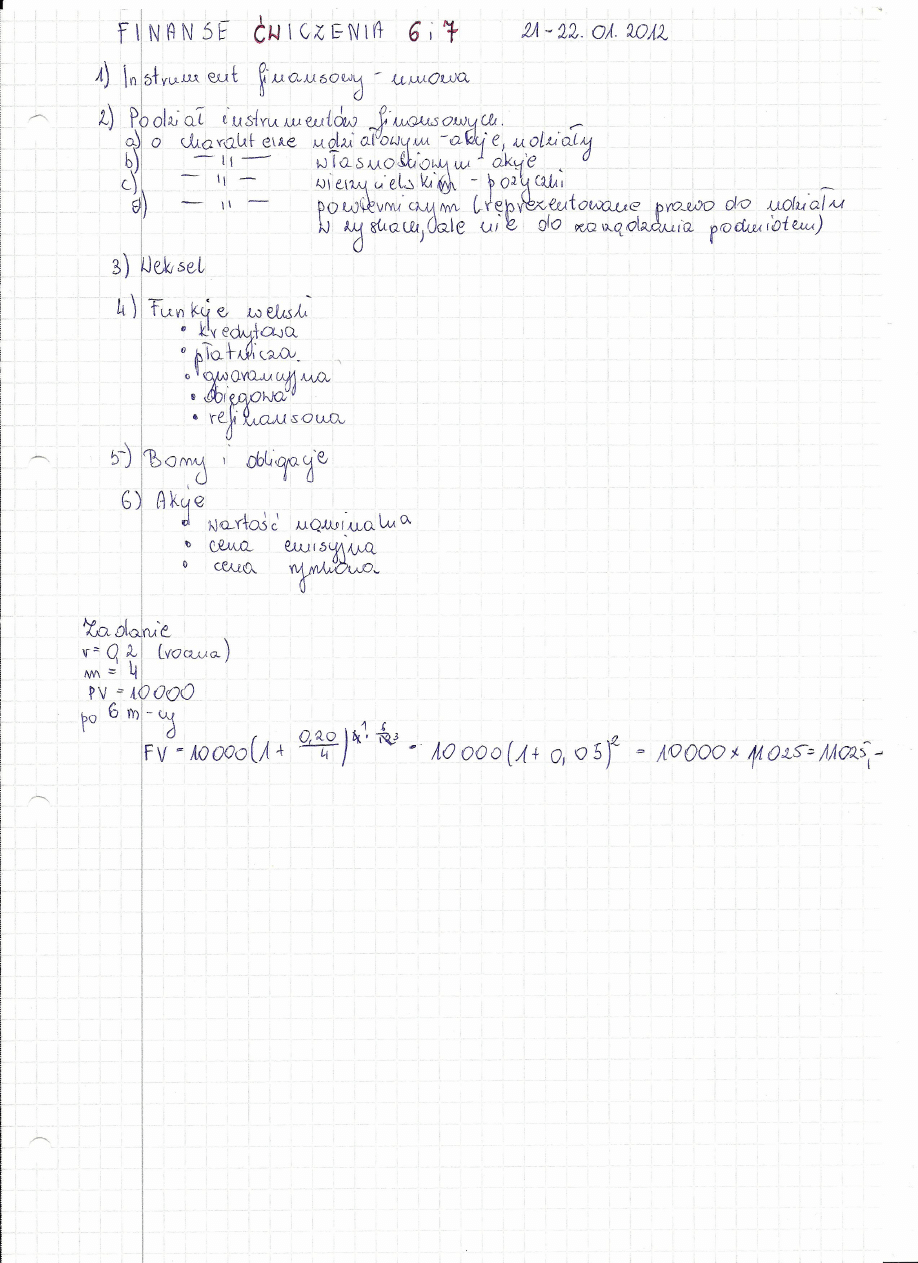 FINANSE ĆWICZENIA 6 i 7 21-22.01.2012
1) Instrument finansowy - umowa
2) Podział instrumentów finansowych.
a) o charakterze udziałowym - akcje, udziały
b) — 11 — własnościowym - akcje
c) — 11 — wierzycielskim - pożyczki
d) — 11 — powierniczym (reprezentowane prawo do udziału
w zyskach, ale nie do zarządzania podmiotem)
3) Weksel
4) Funkcje weksli
• kredytowa
• płatnicza
• gwarancyjna
• obiegowa
• refinansowa
5) Bony i obligacje
6) Akcje
• wartość nominalna
• cena emisyjna
• cena rynkowa
Zadanie
r = 0,2 (roczna)
m = 4
PV = 10000
po 6 m-cy
FV = 10000(1 + 0,20/4)^4·6/12 = 10 000(1 + 0,05)^2 = 10000 × 1,1025 = 11025,-